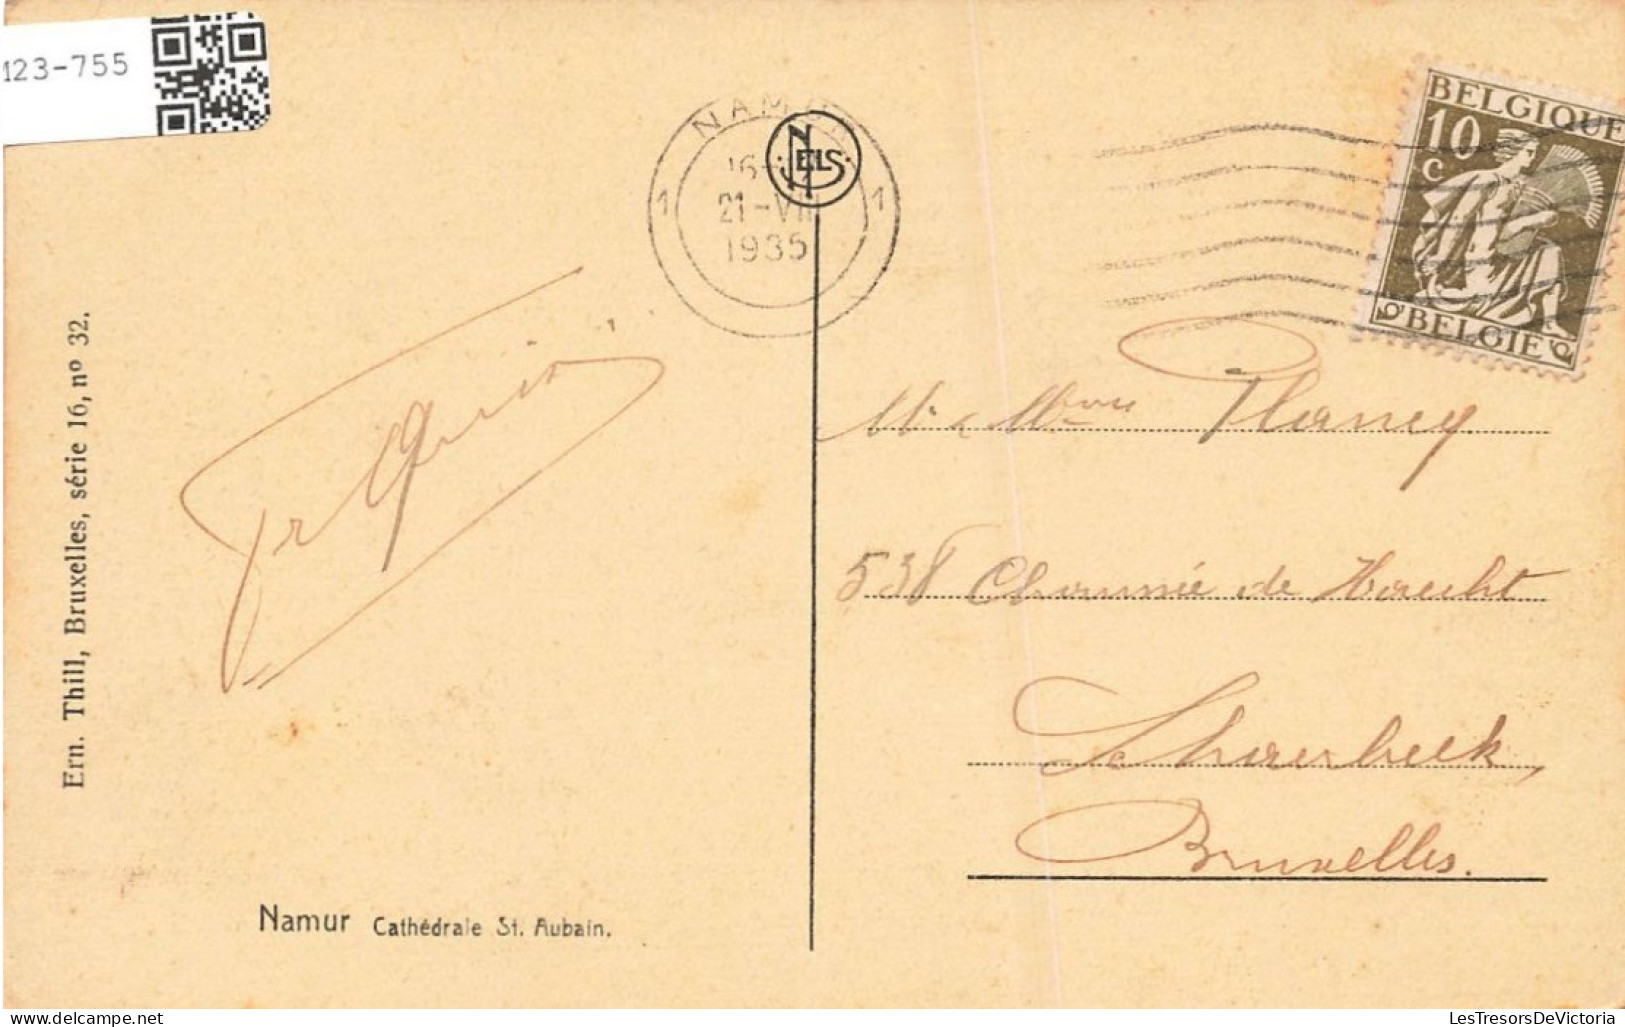 123-755
NAMUR
1 1
21-VII
1935
NELS
BELGIQUE
10
C
BELGIE
Ern. Thill, Bruxelles, série 16, nº 32.
Mr & Mme Plancy
538 Chaussée de Haecht
Schaerbeek,
Bruxelles.
Namur Cathédrale St. Aubain.
www.delcampe.net
LesTresorsDeVictoria